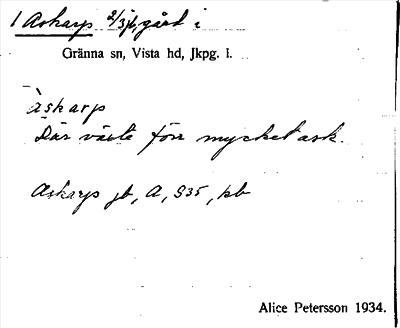 1 Askarp 2/3 jb, gård i
Gränna sn, Vista hd, Jkpg. l.
àskarp
Där växte förr mycket ask.
Askarps jb, A, S35, kb
Alice Petersson 1934.